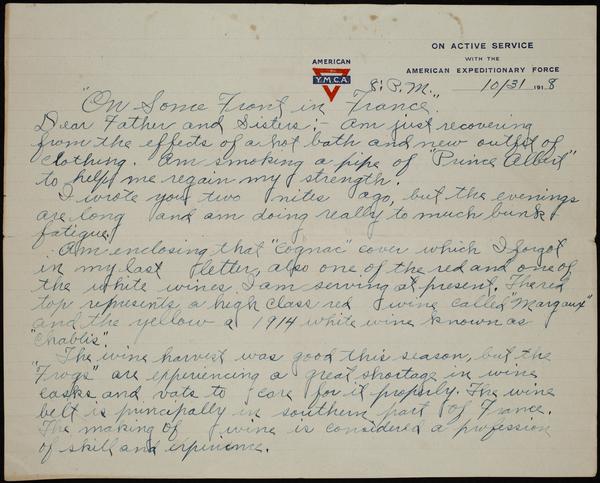 ON ACTIVE SERVICE
WITH THE
AMERICAN EXPEDITIONARY FORCE
AMERICAN
Y.M.C.A.
8: P.M. 10/31 1918
"On Some Front in France."
Dear Father and Sisters:- Am just recovering
from the effects of a hot bath and new outfit of
clothing. Am smoking a pipe of "Prince Albert"
to help me regain my strength.
I wrote you two nites ago, but the evenings
are long and am doing really to much bunk
fatigue.
Am enclosing that "Cognac" cover which I forgot
in my last letter, also one of the red and one of
the white wines I am serving at present. The red
top represents a high class red wine called "Margaux"
and the yellow a 1914 white wine known as
"Chablis".
The wine harvest was good this season, but the
"Frogs" are experiencing a great shortage in wine
casks and vats to care for it properly. The wine
belt is principally in southern part of France.
The making of wine is considered a profession
of skill and experience.